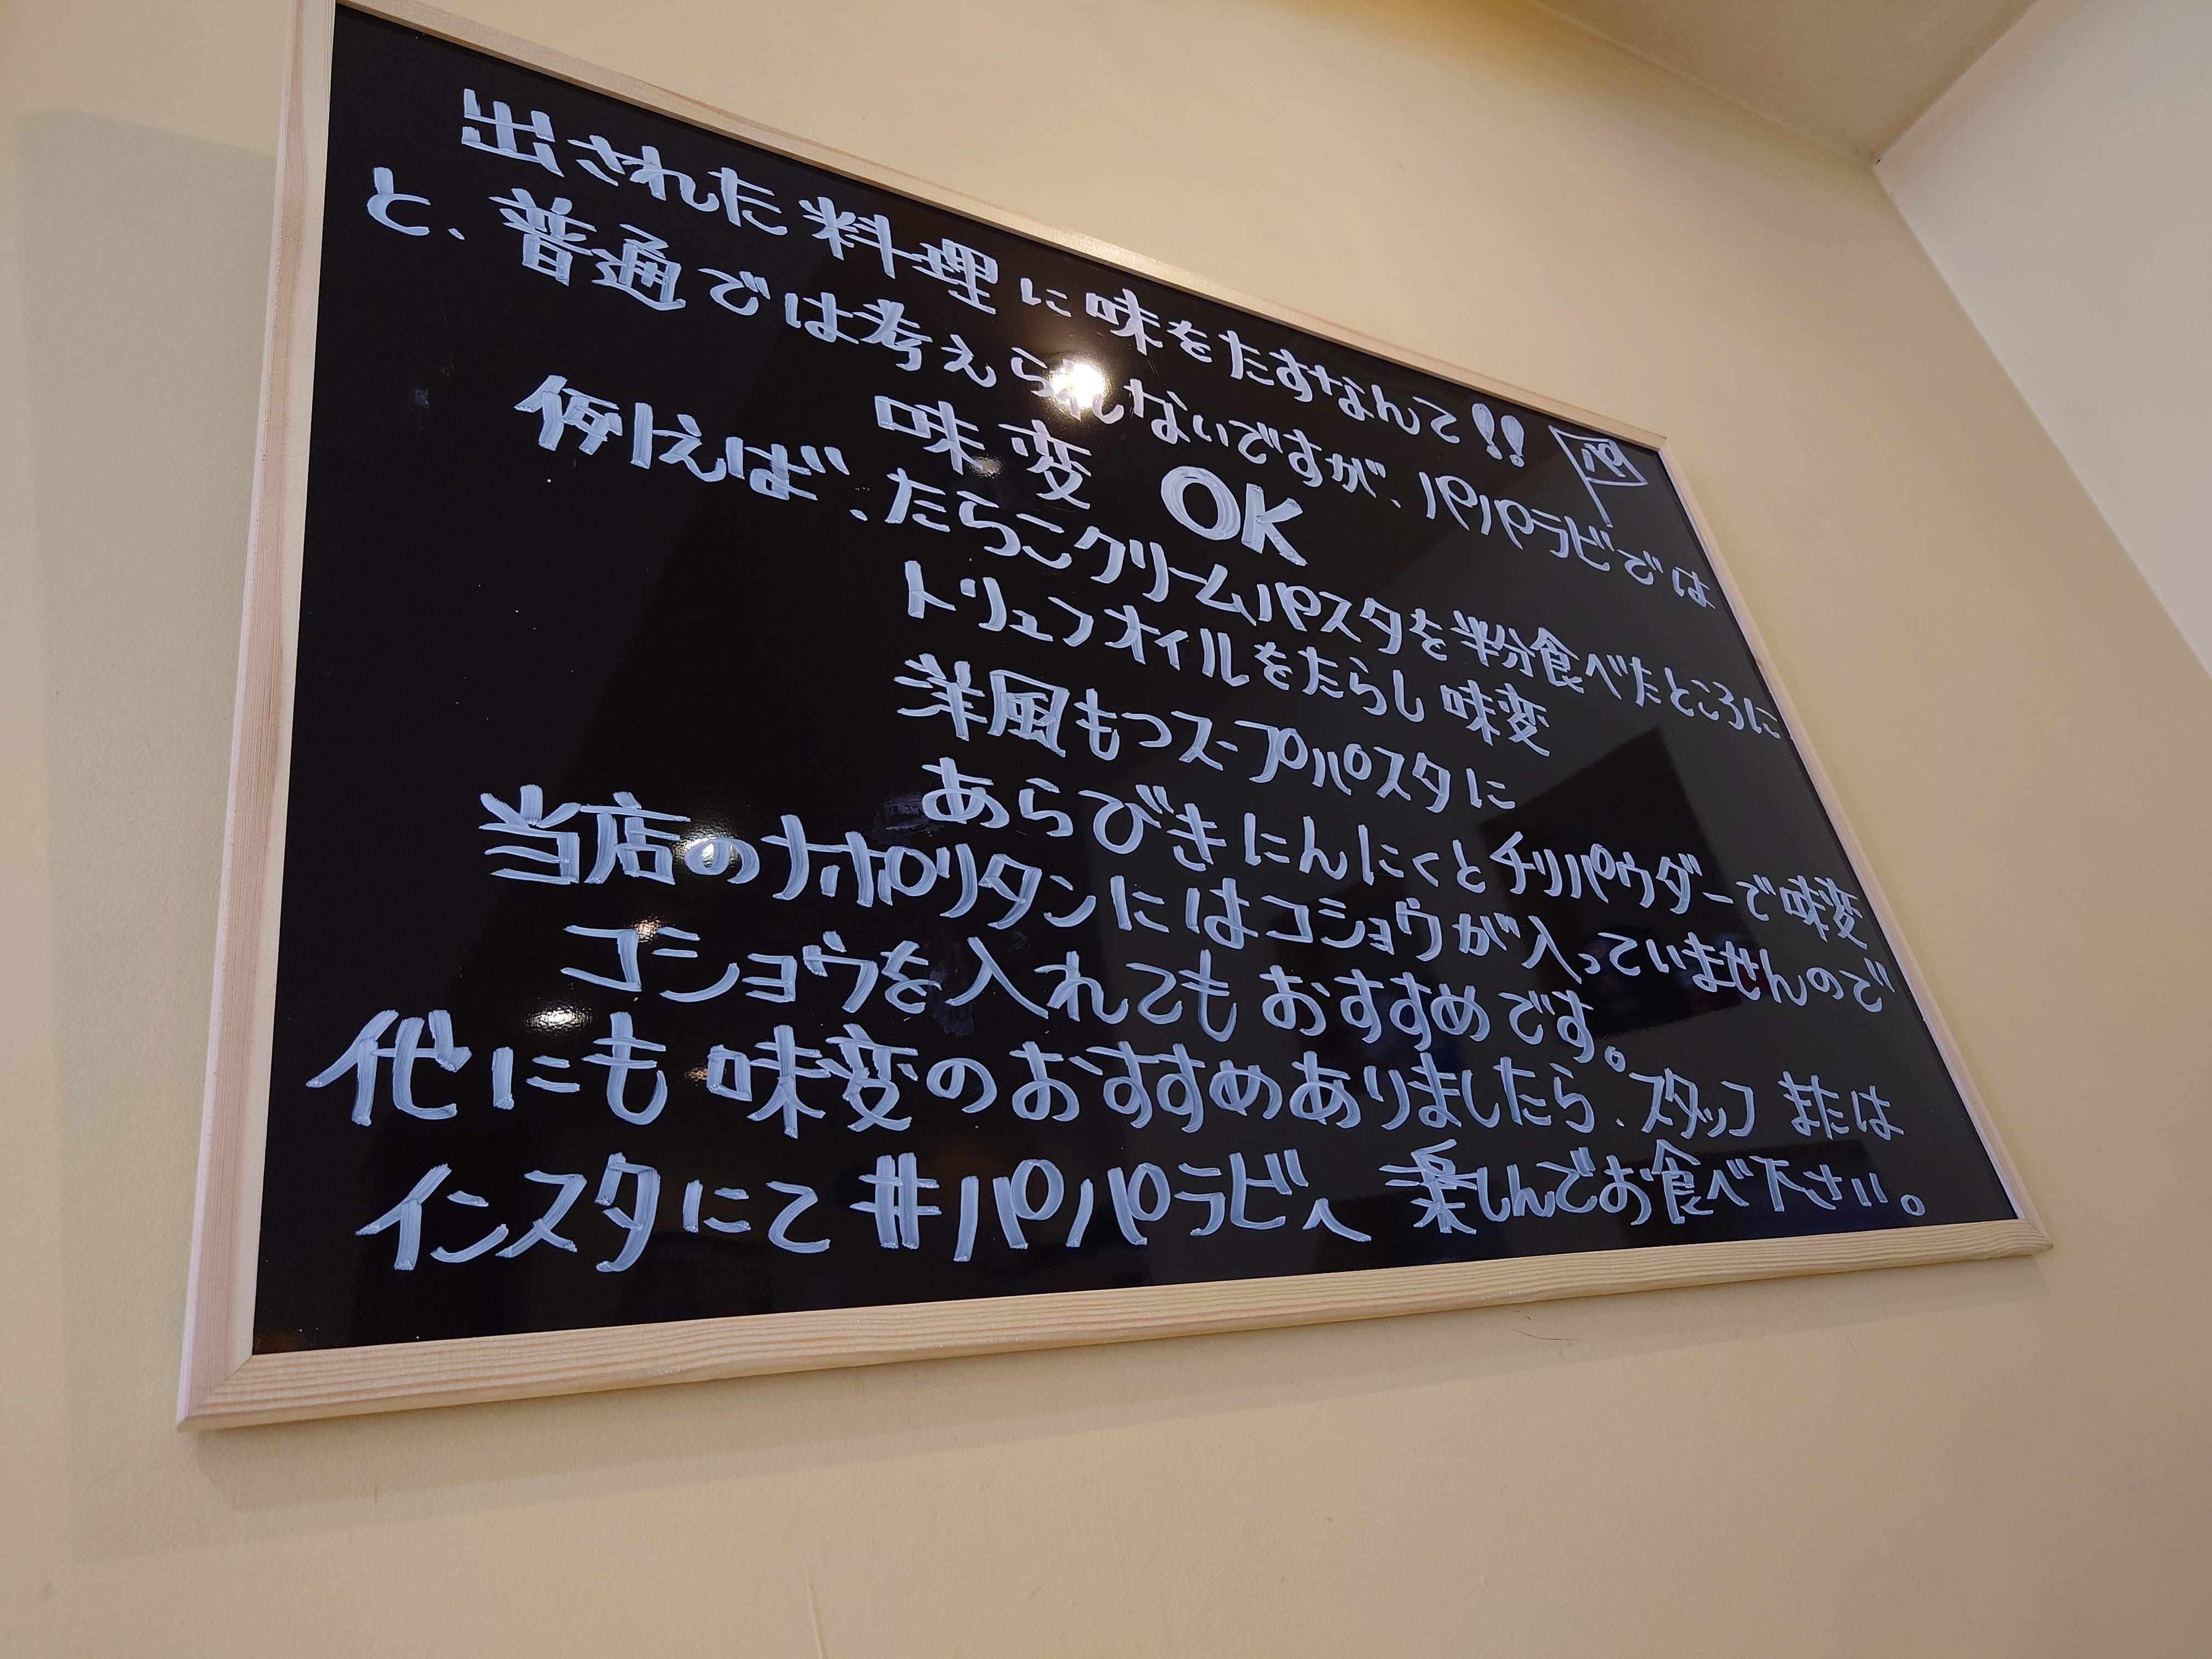 出された料理に味をたすなんて!!
パ
と、普通では考えられないですが、パパラビでは
味変 OK
例えば、たらこクリームパスタを半分食べたところに
トリュフオイルをたらし味変
洋風もつスープパスタに
あらびきにんにくとチリパウダーで味変
当店のナポリタンにはコショウが入っていませんので
コショウを入れてもおすすめです。
他にも味変のおすすめありましたら、スタッフ または
インスタにて#パパラビへ 楽しんでお食べ下さい。